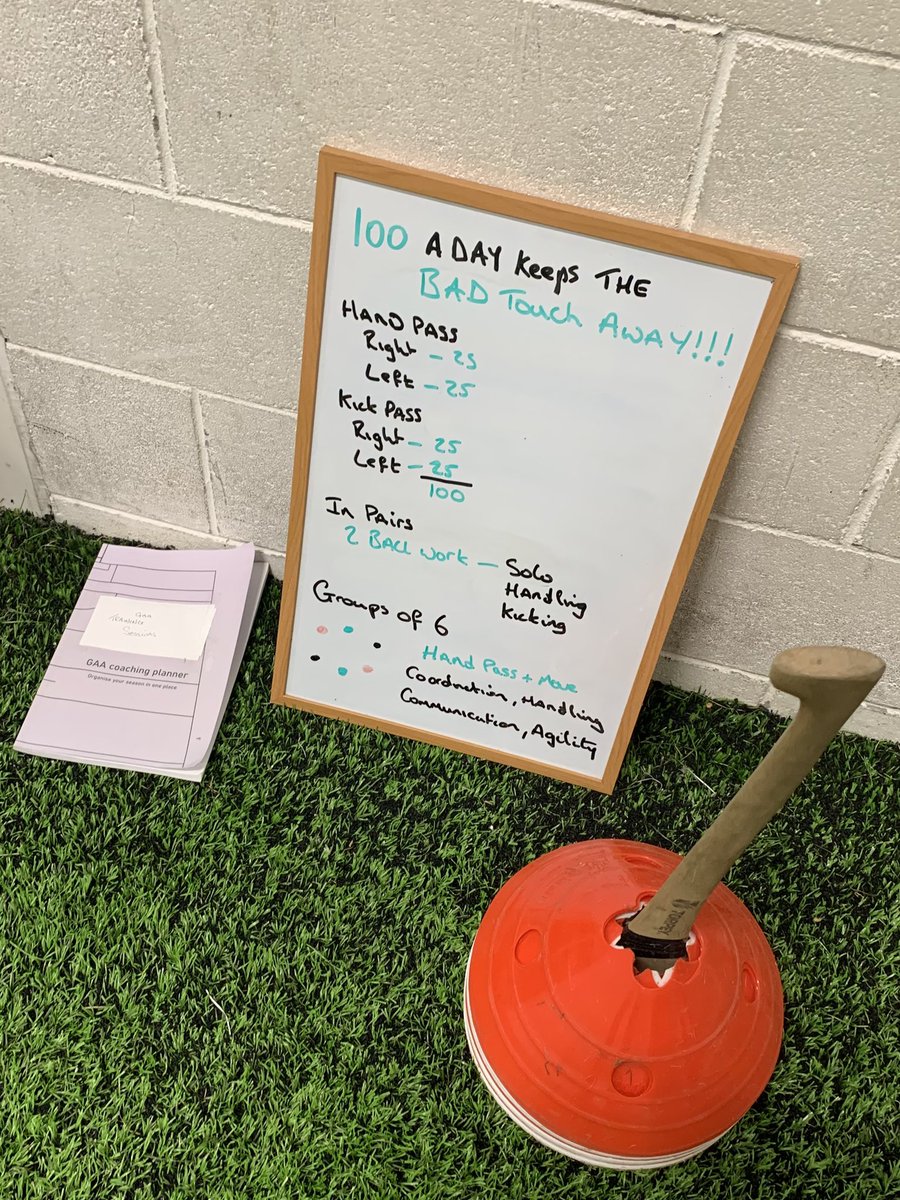 100 A DAY Keeps THE
BAD Touch AWAY!!!
HAND PASS
Right - 25
Left - 25
Kick PASS
Right - 25
Left - 25
100
In Pairs
2 BALL work - Solo
Handling
Kicking
Groups of 6
Hand Pass + Move
Coordination, Handling
Communication, Agility
GAA
Sessions
GAA coaching planner
Organise your season in one place
1